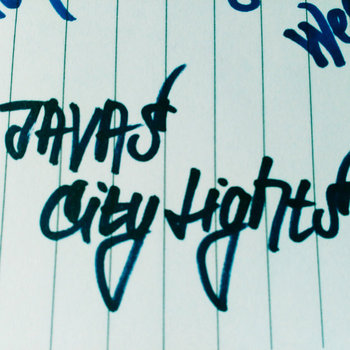 We
JAVAS
City Lights